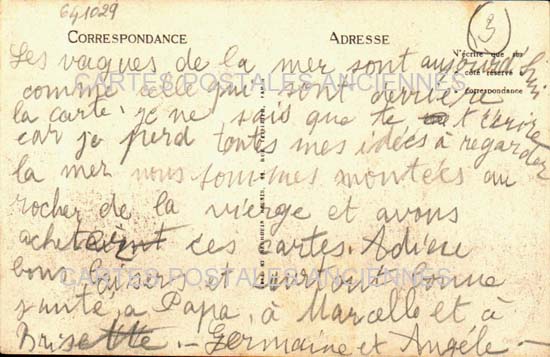 641029
3
CORRESPONDANCE
ADRESSE
N'écrire que sur
côté réservé
correspondance
CARTES POSTALES ANCIENNES
Les vagues de la mer sont aujourd'hui
comme celle qui sont derrière
la carte. je ne sais que te t'écrire
car je perd toutes mes idées à regarder
la mer nous sommes montées au
rocher de la vierge et avons
ces cartes. Adieu
bons baisers et surtout bonne
santé, a Papa, à Marcelle et à
Brisette. — Germaine et Angèle —
CARTES POSTALES ANCIENNES